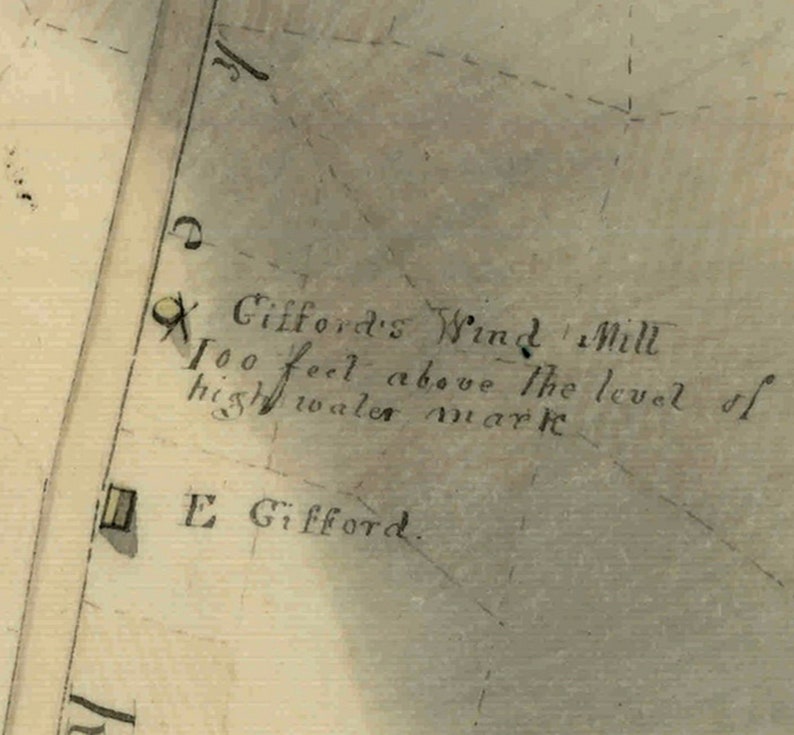 Gifford's Wind Mill
100 feet above the level of
high water mark
E Gifford.